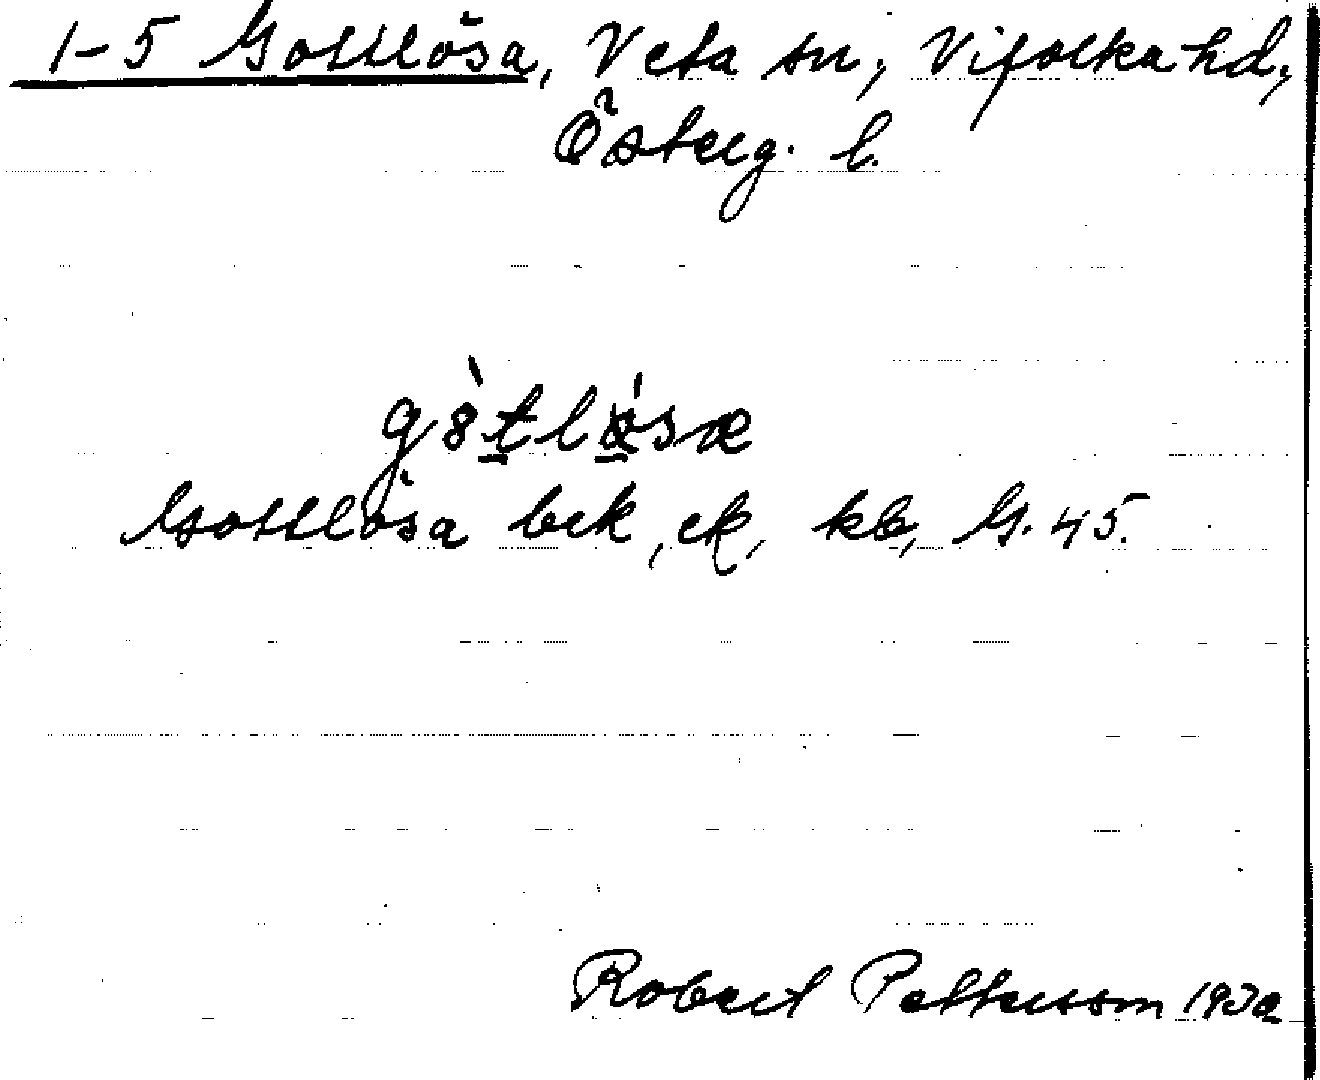 1-5 Gottlösa, Veta sn, Vifolka hd,
Österg. l.
Gottlösa bek, ek, kb, G. 45.
Robert Pettersson 1932